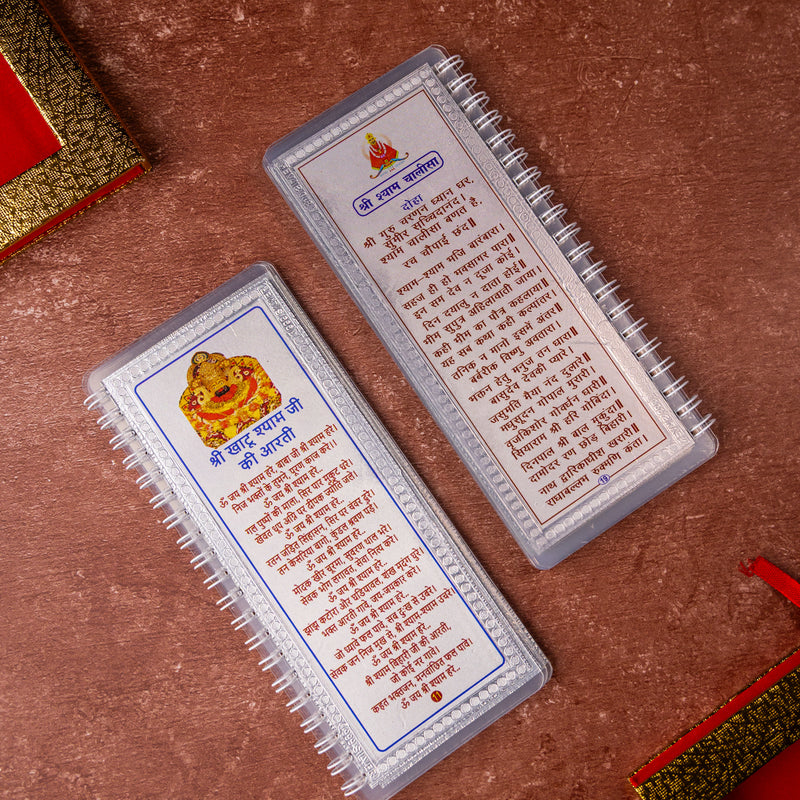 श्री खाटू श्याम जी
की आरती
ॐ जय श्री श्याम हरे, बाबा जी श्री श्याम हरे।
निज भक्तों के तुमने, पूरण काज करे।।
ॐ जय श्री श्याम हरे..
गल पुष्पों की माला, सिर पार मुकुट धरे।
खेवत धूप अग्नि पर दीपक ज्योति जले।
ॐ जय श्री श्याम हरे..
रतन जड़ित सिंहासन, सिर पर चंवर ढुरे।
तन केसरिया बागो, कुंडल श्रवण पड़े।
ॐ जय श्री श्याम हरे..
मोदक खीर चूरमा, सुवरण थाल भरे।
सेवक भोग लगावत, सेवा नित्य करे।
ॐ जय श्री श्याम हरे..
झांझ कटोरा और घडियावल, शंख मृदंग घुरे।
भक्त आरती गावे, जय-जयकार करे।
ॐ जय श्री श्याम हरे..
जो ध्यावे फल पावे, सब दुःख से उबरे।
सेवक जन निज मुख से, श्री श्याम श्याम उचरे।
ॐ जय श्री श्याम हरे..
श्री श्याम बिहारी जी की आरती,
जो कोई नर गावे।
कहत भक्तजन, मनवांछित फल पावे।
ॐ जय श्री श्याम हरे..
11
श्री श्याम चालीसा
दोहा
श्री गुरु चरणन ध्यान धर,
सुमीर सच्चिदानंद।
श्याम चालीसा बणत है,
रच चौपाई छंद॥
श्याम-श्याम भजि बारंबारा।
सहज ही हो भवसागर पारा॥
इन सम देव न दूजा कोई।
दिन दयालु न दाता होई॥
भीम सुपुत्र अहिलावाती जाया।
कही भीम का पौत्र कहलाया॥
यह सब कथा कही कल्पांतर।
तनिक न मानो इसमें अंतर॥
बर्बरीक विष्णु अवतारा।
भक्तन हेतु मनुज तन धारा॥
बासुदेव देवकी प्यारे।
जसुमति मैया नंद दुलारे॥
मधुसूदन गोपाल मुरारी।
वृजकिशोर गोवर्धन धारी॥
सियाराम श्री हरि गोबिंदा।
दिनपाल श्री बाल मुकुंदा॥
दामोदर रण छोड़ बिहारी।
नाथ द्वारिकाधीश खरारी॥
राधाबल्लभ रुक्मणि कंता।
19